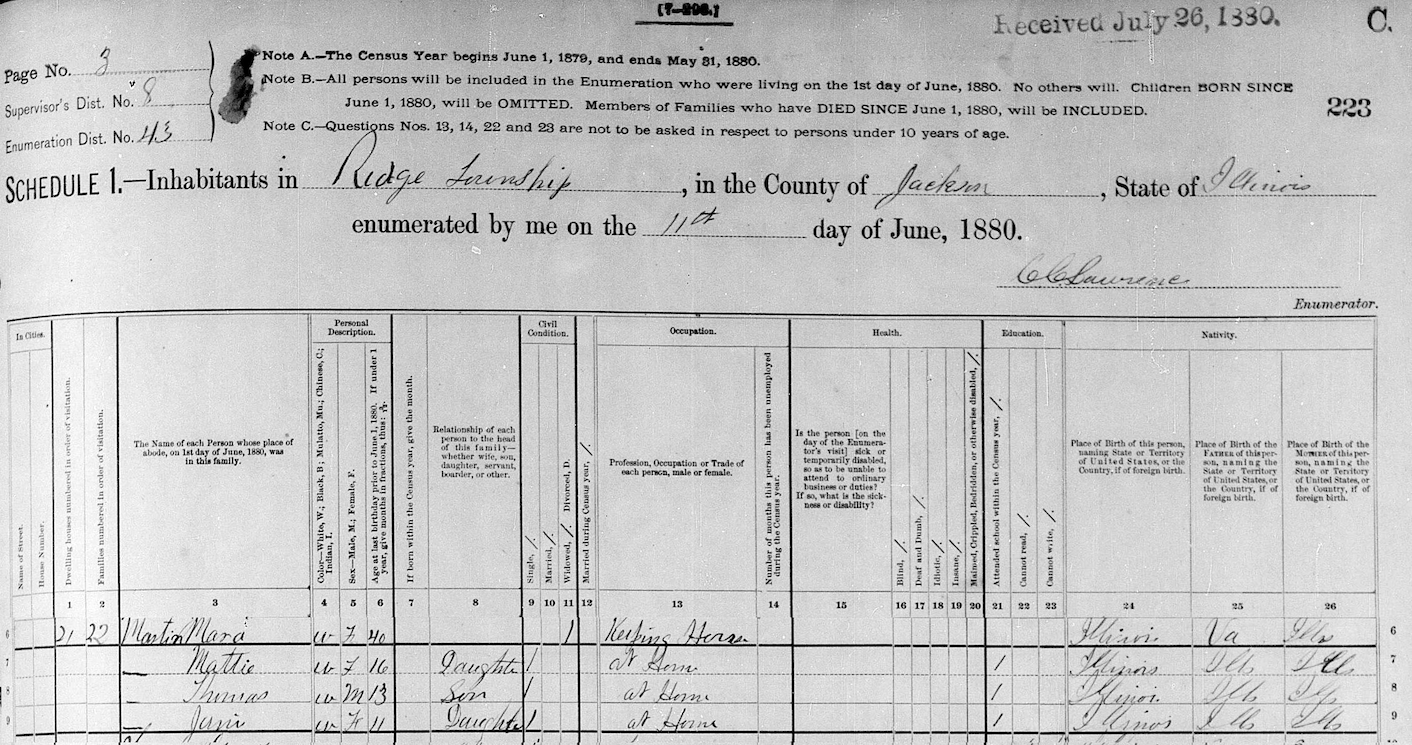 [7-296.]
Received July 26, 1880.
C.
Page No. 3
Supervisor's Dist. No. 8
Enumeration Dist. No. 43
Note A.—The Census Year begins June 1, 1879, and ends May 31, 1880.
Note B.—All persons will be included in the Enumeration who were living on the 1st day of June, 1880. No others will. Children BORN SINCE
June 1, 1880, will be OMITTED. Members of Families who have DIED SINCE June 1, 1880, will be INCLUDED.
Note C.—Questions Nos. 13, 14, 22 and 23 are not to be asked in respect to persons under 10 years of age.
223
SCHEDULE 1.—Inhabitants in Ridge Township, in the County of Jackson, State of Illinois
enumerated by me on the 11th day of June, 1880.
CC Lawrence
Enumerator.
In Cities.
Name of Street.
House Number.
Dwelling houses numbered in order of visitation.
Families numbered in order of visitation.
The Name of each Person whose place of
abode, on 1st day of June, 1880, was
in this family.
Personal
Description.
Color—White, W.; Black, B.; Mulatto, Mu.; Chinese, C.;
Indian, I.
Sex—Male, M.; Female, F.
Age at last birthday prior to June 1, 1880. If under 1
year, give months in fractions, thus: 3/12.
If born within the Census year, give the month.
Relationship of each
person to the head
of this family—
whether wife, son,
daughter, servant,
boarder, or other.
Civil
Condition.
Single, /.
Married, /.
Widowed, /. Divorced, D.
Married during Census year, /.
Occupation.
Profession, Occupation or Trade of
each person, male or female.
Number of months this person has been unemployed
during the Census year.
Health.
Is the person [on the
day of the Enumera-
tor's visit] sick or
temporarily disabled,
so as to be unable to
attend to ordinary
business or duties?
If so, what is the sick-
ness or disability?
Blind, /.
Deaf and Dumb, /.
Idiotic, /.
Insane, /.
Maimed, Crippled, Bedridden, or otherwise disabled, /.
Education.
Attended school within the Census year, /.
Cannot read, /.
Cannot write, /.
Nativity.
Place of Birth of this person,
naming State or Territory
of United States, or the
Country, if of foreign birth.
Place of Birth of the
FATHER of this per-
son, naming the
State or Territory
of United States, or
the Country, if of
foreign birth.
Place of Birth of the
MOTHER of this per-
son, naming the
State or Territory
of United States, or
the Country, if of
foreign birth.
1 2 3 4 5 6 7 8 9 10 11 12 13 14 15 16 17 18 19 20 21 22 23 24 25 26
6 21 22 Martin W F 40 1 Keeping House Illinois Va Ills 6
7 — Mattie W F 16 Daughter 1 at Home 1 Illinois Ills Ills 7
8 — Thomas W M 13 Son 1 at Home 1 Illinois Ills Ills 8
9 — W F 11 Daughter 1 at Home 1 Illinois Ills Ills 9